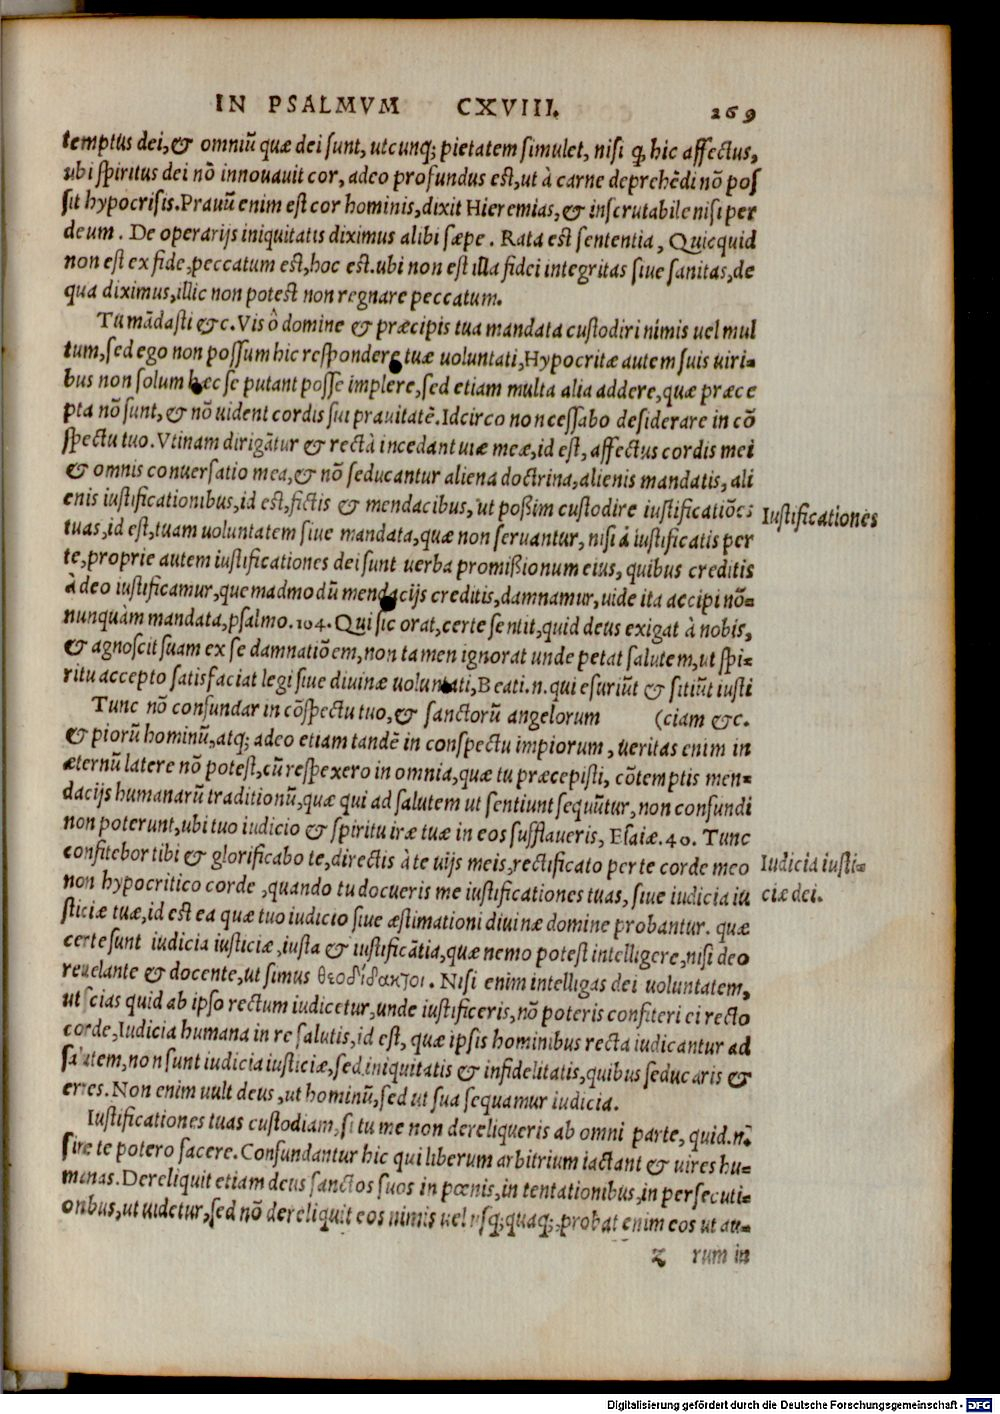 IN PSALMVM CXVIII. 269
temptus dei, & omniū quæ dei sunt, utcunq; pietatem simulet, nisi q, hic affectus,
ubi spiritus dei nō innouauit cor, adeo profundus est, ut à carne deprehēdi nō pos
sit hypocrisis. Prauū enim est cor hominis, dixit Hieremias, & inscrutabile nisi per
deum. De operarijs iniquitatis diximus alibi sæpe. Rata est sententia, Quicquid
non est ex fide, peccatum est, hoc est. ubi non est illa fidei integritas siue sanitas, de
qua diximus, illic non potest non regnare peccatum.
Tu mādasti &c. Vis ô domine & præcipis tua mandata custodiri nimis uel mul
tum, sed ego non possum hic respondere tuæ uoluntati, Hypocritæ autem suis uiri-
bus non solum hæc se putant posse implere, sed etiam multa alia addere, quæ præce
pta nō sunt, & nō uident cordis sui prauitatē. Idcirco non cessabo desiderare in cō
spectu tuo. Vtinam dirigātur & rectà incedant uiæ meæ, id est, affectus cordis mei
& omnis conuersatio mea, & nō seducantur aliena doctrina, alienis mandatis, ali
enis iustificationibus, id est, fictis & mendacibus, ut poßim custodire iustificatiōes
Iustificationes
tuas, id est, tuam uoluntatem siue mandata, quæ non seruantur, nisi à iustificatis per
te, proprie autem iustificationes dei sunt uerba promißionum eius, quibus creditis
à deo iustificamur, quemadmodū mendacijs creditis, damnamur, uide ita accipi nō-
nunquàm mandata, psalmo. 104. Qui sic orat, certe sentit, quid deus exigat à nobis,
& agnoscit suam ex se damnatiōem, non tamen ignorat unde petat salutem, ut spi-
ritu accepto satisfaciat legi siue diuinæ uoluntati, Beati. n. qui esuriūt & sitiūt iusti
Tunc nō confundar in cōspectu tuo, & sanctorū angelorum (ciam &c.
& piorū hominū, atq; adeo etiam tandē in conspectu impiorum, ueritas enim in
æternū latere nō potest, cū respexero in omnia, quæ tu præcepisti, cōtemptis men-
dacijs humanarū traditionū, quæ qui ad salutem ut sentiunt sequūtur, non confundi
non poterunt, ubi tuo iudicio & spiritu iræ tuæ in eos sufflaueris, Esaiæ. 40. Tunc
confitebor tibi & glorificabo te, directis à te uijs meis, rectificato per te corde meo
Iudicia iusti-
non hypocritico corde, quando tu docueris me iustificationes tuas, siue iudicia iu
ciæ dei.
sticiæ tuæ, id est ea quæ tuo iudicio siue æstimationi diuinæ domine probantur. quæ
certe sunt iudicia iusticiæ, iusta & iustificātia, quæ nemo potest intelligere, nisi deo
reuelante & docente, ut simus θεοδίδακτοι. Nisi enim intelligas dei uoluntatem,
ut scias quid ab ipso rectum iudicetur, unde iustificeris, nō poteris confiteri ei recto
corde, Iudicia humana in re salutis, id est, quæ ipsis hominibus recta iudicantur ad
salutem, non sunt iudicia iusticiæ, sed iniquitatis & infidelitatis, quibus seducaris &
erres. Non enim uult deus, ut hominū, sed ut sua sequamur iudicia.
Iustificationes tuas custodiam, si tu me non dereliqueris ab omni parte, quid. n.
sine te potero facere. Confundantur hic qui liberum arbitrium iactant & uires hu-
manas. Dereliquit etiam deus sanctos suos in pœnis, in tentationibus, in persecuti-
onibus, ut uidetur, sed nō dereliquit eos nimis uel usq; quaq;, probat enim eos ut au-
z rum in
Digitalisierung gefördert durch die Deutsche Forschungsgemeinschaft - DFG